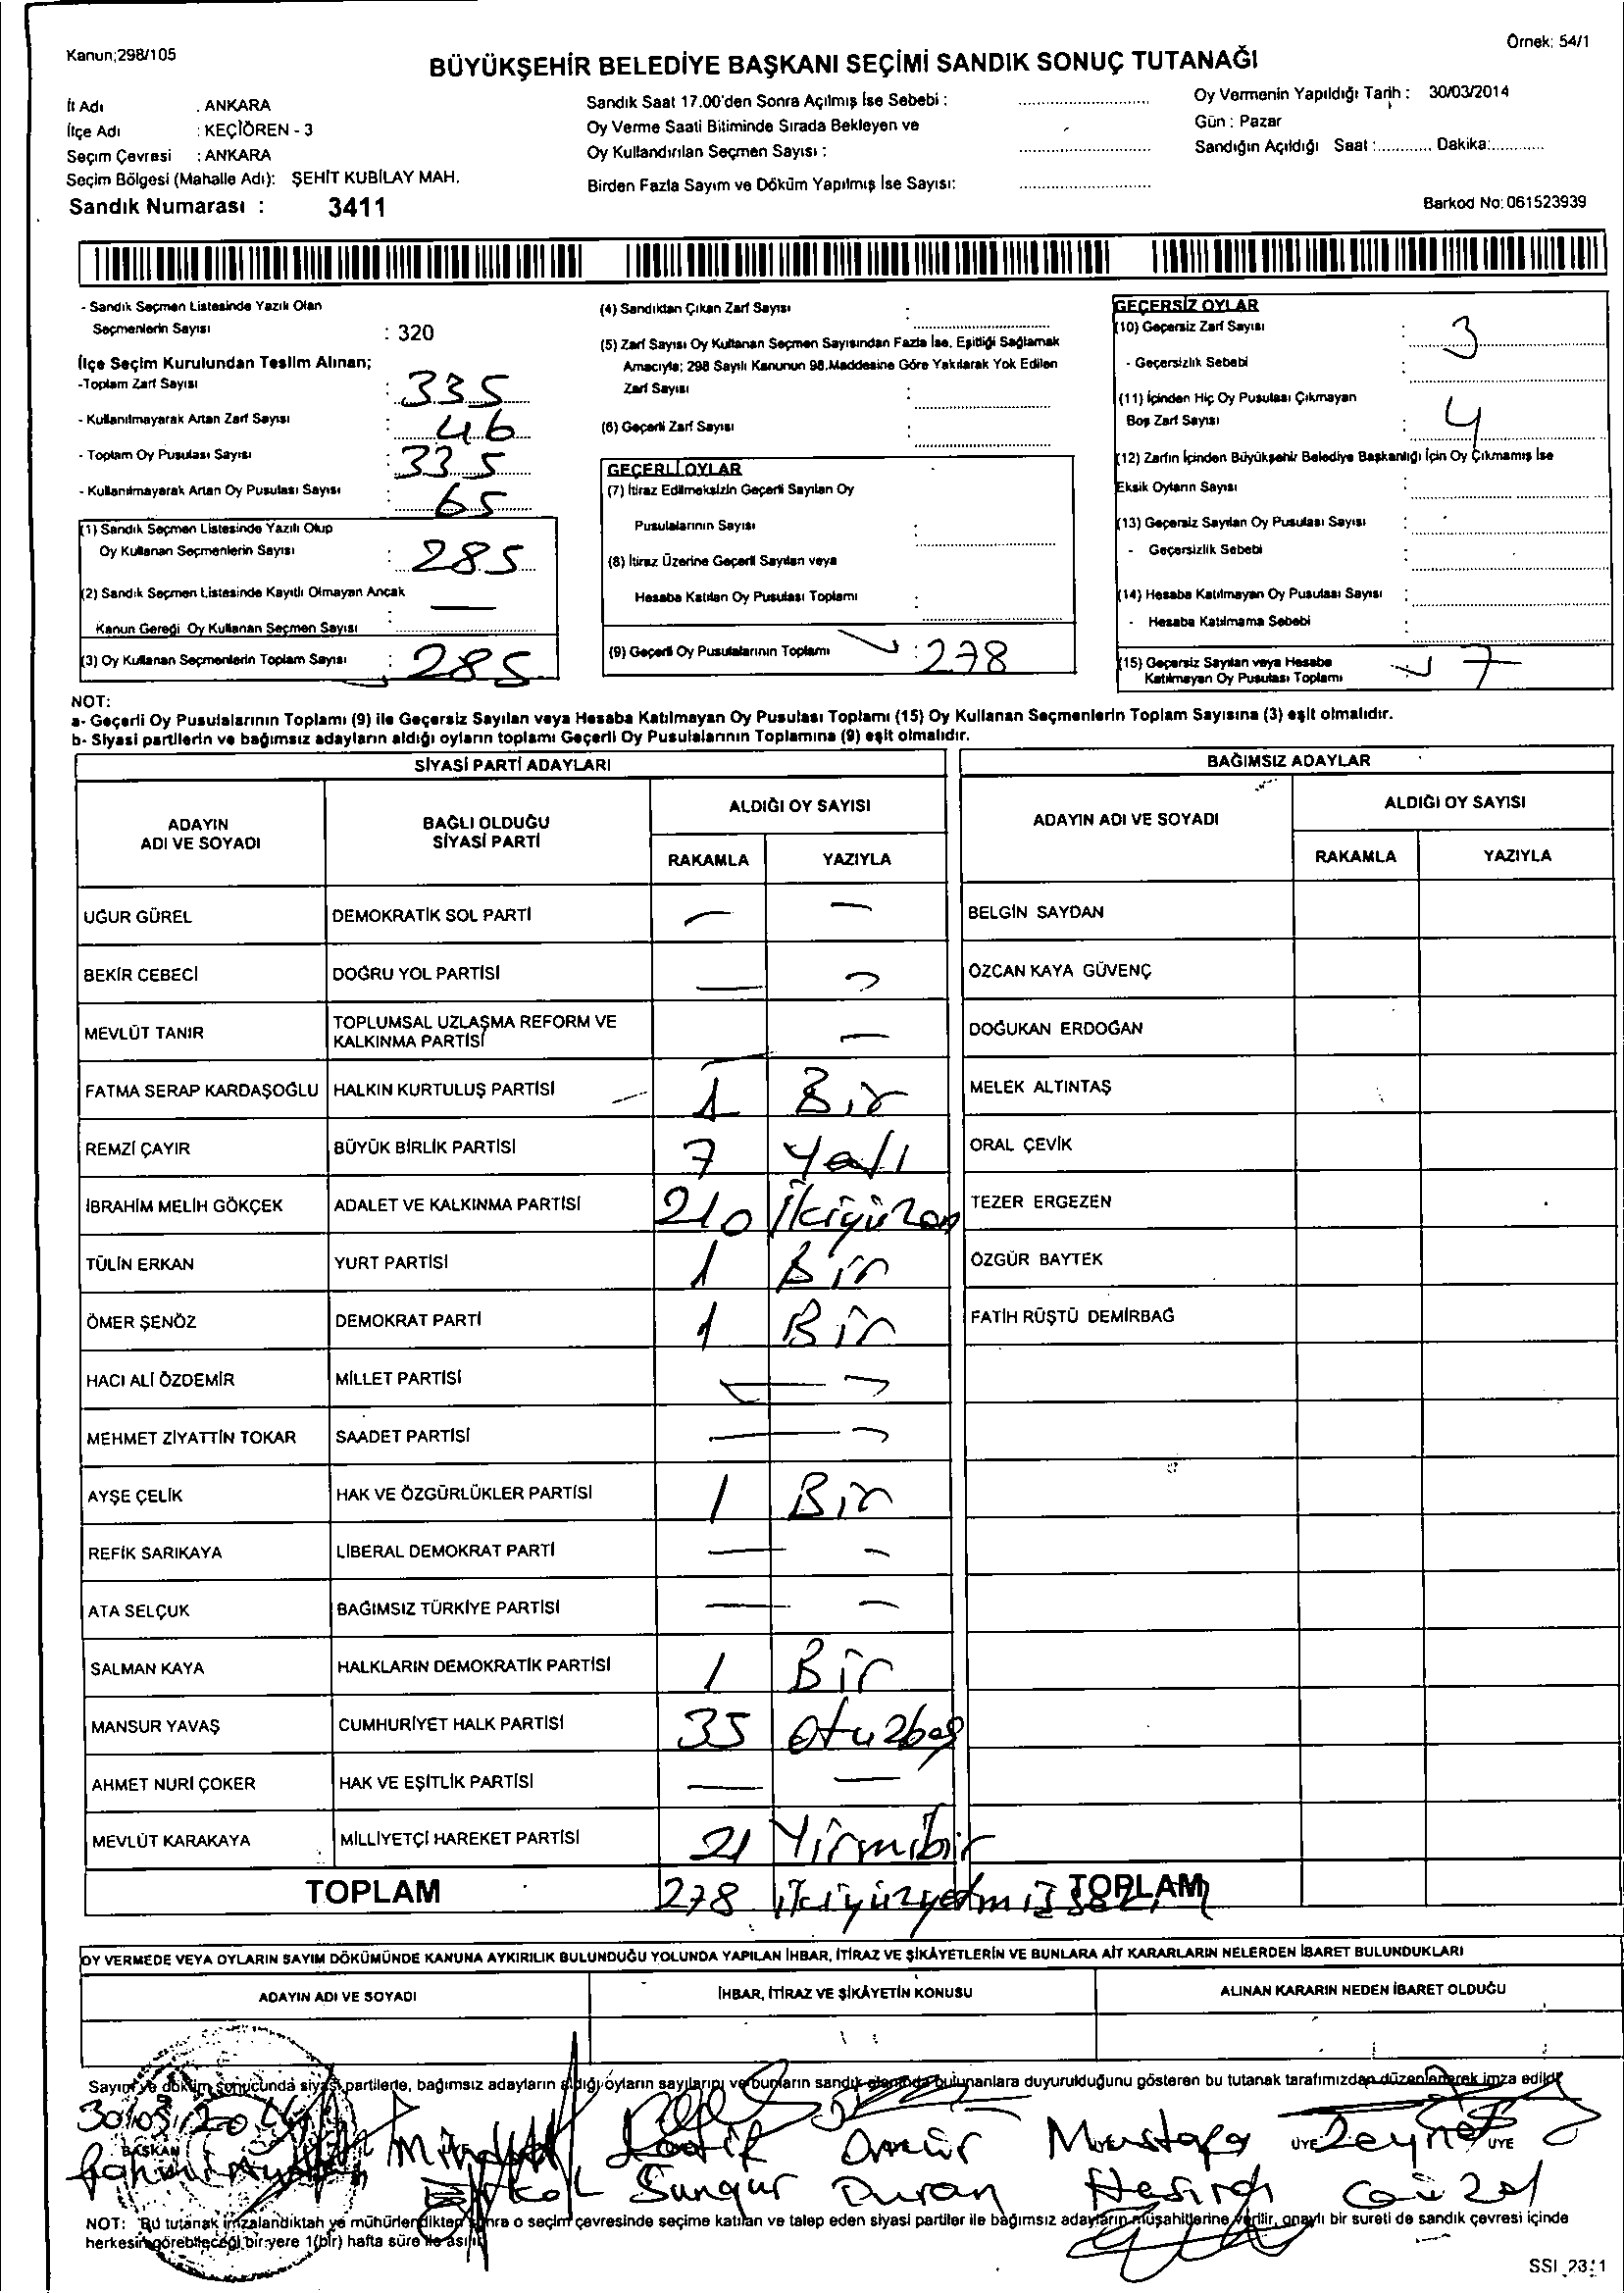 Kanun;298/105
Örnek: 54/1
BÜYÜKŞEHİR BELEDİYE BAŞKANI SEÇİMİ SANDIK SONUÇ TUTANAĞI
İl Adı : ANKARA
İlçe Adı : KEÇİÖREN - 3
Seçim Çevresi : ANKARA
Seçim Bölgesi (Mahalle Adı): ŞEHİT KUBİLAY MAH.
Sandık Numarası : 3411
Sandık Saat 17.00'den Sonra Açılmış İse Sebebi :
Oy Verme Saati Bitiminde Sırada Bekleyen ve
Oy Kullandırılan Seçmen Sayısı :
Birden Fazla Sayım ve Döküm Yapılmış İse Sayısı:
Oy Vermenin Yapıldığı Tarih : 30/03/2014
Gün : Pazar
Sandığın Açıldığı Saat :............ Dakika:............
Barkod No: 061523939
- Sandık Seçmen Listesinde Yazılı Olan
Seçmenlerin Sayısı : 320
İlçe Seçim Kurulundan Teslim Alınan;
-Toplam Zarf Sayısı : 335
- Kullanılmayarak Artan Zarf Sayısı : 46
- Toplam Oy Pusulası Sayısı : 335
- Kullanılmayarak Artan Oy Pusulası Sayısı : 65
(1) Sandık Seçmen Listesinde Yazılı Olup
Oy Kullanan Seçmenlerin Sayısı : 285
(2) Sandık Seçmen Listesinde Kayıtlı Olmayan Ancak
Kanun Gereği Oy Kullanan Seçmen Sayısı : —
(3) Oy Kullanan Seçmenlerin Toplam Sayısı : 285
(4) Sandıktan Çıkan Zarf Sayısı :
(5) Zarf Sayısı Oy Kullanan Seçmen Sayısından Fazla İse, Eşitliği Sağlamak
Amacıyla; 298 Sayılı Kanunun 98.Maddesine Göre Yakılarak Yok Edilen
Zarf Sayısı :
(6) Geçerli Zarf Sayısı :
GEÇERLİ OYLAR
(7) İtiraz Edilmeksizin Geçerli Sayılan Oy
Pusulalarının Sayısı :
(8) İtiraz Üzerine Geçerli Sayılan veya
Hesaba Katılan Oy Pusulası Toplamı :
(9) Geçerli Oy Pusulalarının Toplamı : 278
GEÇERSİZ OYLAR
(10) Geçersiz Zarf Sayısı : 3
- Geçersizlik Sebebi :
(11) İçinden Hiç Oy Pusulası Çıkmayan
Boş Zarf Sayısı : 4
(12) Zarfın İçinden Büyükşehir Belediye Başkanlığı İçin Oy Çıkmamış İse
Eksik Oyların Sayısı :
(13) Geçersiz Sayılan Oy Pusulası Sayısı :
- Geçersizlik Sebebi :
(14) Hesaba Katılmayan Oy Pusulası Sayısı :
- Hesaba Katılmama Sebebi :
(15) Geçersiz Sayılan veya Hesaba
Katılmayan Oy Pusulası Toplamı 7
NOT:
a- Geçerli Oy Pusulalarının Toplamı (9) ile Geçersiz Sayılan veya Hesaba Katılmayan Oy Pusulası Toplamı (15) Oy Kullanan Seçmenlerin Toplam Sayısına (3) eşit olmalıdır.
b- Siyasi partilerin ve bağımsız adayların aldığı oyların toplamı Geçerli Oy Pusulalarının Toplamına (9) eşit olmalıdır.
SİYASİ PARTİ ADAYLARI
ADAYIN
ADI VE SOYADI
BAĞLI OLDUĞU
SİYASİ PARTİ
ALDIĞI OY SAYISI
RAKAMLA YAZIYLA
UĞUR GÜREL DEMOKRATİK SOL PARTİ — —
BEKİR CEBECİ DOĞRU YOL PARTİSİ — —
MEVLÜT TANIR TOPLUMSAL UZLAŞMA REFORM VE
KALKINMA PARTİSİ — —
FATMA SERAP KARDAŞOĞLU HALKIN KURTULUŞ PARTİSİ 1 Bir
REMZİ ÇAYIR BÜYÜK BİRLİK PARTİSİ 7
İBRAHİM MELİH GÖKÇEK ADALET VE KALKINMA PARTİSİ 210 İkiyüzon
TÜLİN ERKAN YURT PARTİSİ 1 Bir
ÖMER ŞENÖZ DEMOKRAT PARTİ 1 Bir
HACI ALİ ÖZDEMİR MİLLET PARTİSİ — —
MEHMET ZİYATTİN TOKAR SAADET PARTİSİ — —
AYŞE ÇELİK HAK VE ÖZGÜRLÜKLER PARTİSİ 1 Bir
REFİK SARIKAYA LİBERAL DEMOKRAT PARTİ — —
ATA SELÇUK BAĞIMSIZ TÜRKİYE PARTİSİ — —
SALMAN KAYA HALKLARIN DEMOKRATİK PARTİSİ 1 Bir
MANSUR YAVAŞ CUMHURİYET HALK PARTİSİ 35 otuzbeş
AHMET NURİ ÇOKER HAK VE EŞİTLİK PARTİSİ — —
MEVLÜT KARAKAYA MİLLİYETÇİ HAREKET PARTİSİ 21 Yirmibir
TOPLAM 278 ikiyüzyetmişsekiz
BAĞIMSIZ ADAYLAR
ADAYIN ADI VE SOYADI
ALDIĞI OY SAYISI
RAKAMLA YAZIYLA
BELGİN SAYDAN
ÖZCAN KAYA GÜVENÇ
DOĞUKAN ERDOĞAN
MELEK ALTINTAŞ
ORAL ÇEVİK
TEZER ERGEZEN
ÖZGÜR BAYTEK
FATİH RÜŞTÜ DEMİRBAĞ
TOPLAM
OY VERMEDE VEYA OYLARIN SAYIM DÖKÜMÜNDE KANUNA AYKIRILIK BULUNDUĞU YOLUNDA YAPILAN İHBAR, İTİRAZ VE ŞİKÂYETLERİN VE BUNLARA AİT KARARLARIN NELERDEN İBARET BULUNDUKLARI
ADAYIN ADI VE SOYADI İHBAR, İTİRAZ VE ŞİKÂYETİN KONUSU ALINAN KARARIN NEDEN İBARET OLDUĞU
Sayım ve döküm sonucunda siyasi partilerle, bağımsız adayların aldığı oyların sayılarını ve bunların sandık alanında bulunanlara duyurulduğunu gösteren bu tutanak tarafımızdan düzenlenerek imza edildi
30/03/2014
BAŞKAN
Sungur
Duran
Mustafa
ÜYE Zeynep ÜYE
Güzel
NOT: Bu tutanak imzalandıktan ve mühürlendikten sonra o seçim çevresinde seçime katılan ve talep eden siyasi partiler ile bağımsız adayların müşahitlerine verilir, onaylı bir sureti de sandık çevresi içinde
herkesin görebileceği bir yere 1(bir) hafta süre ile asılır.
SSI_23:1